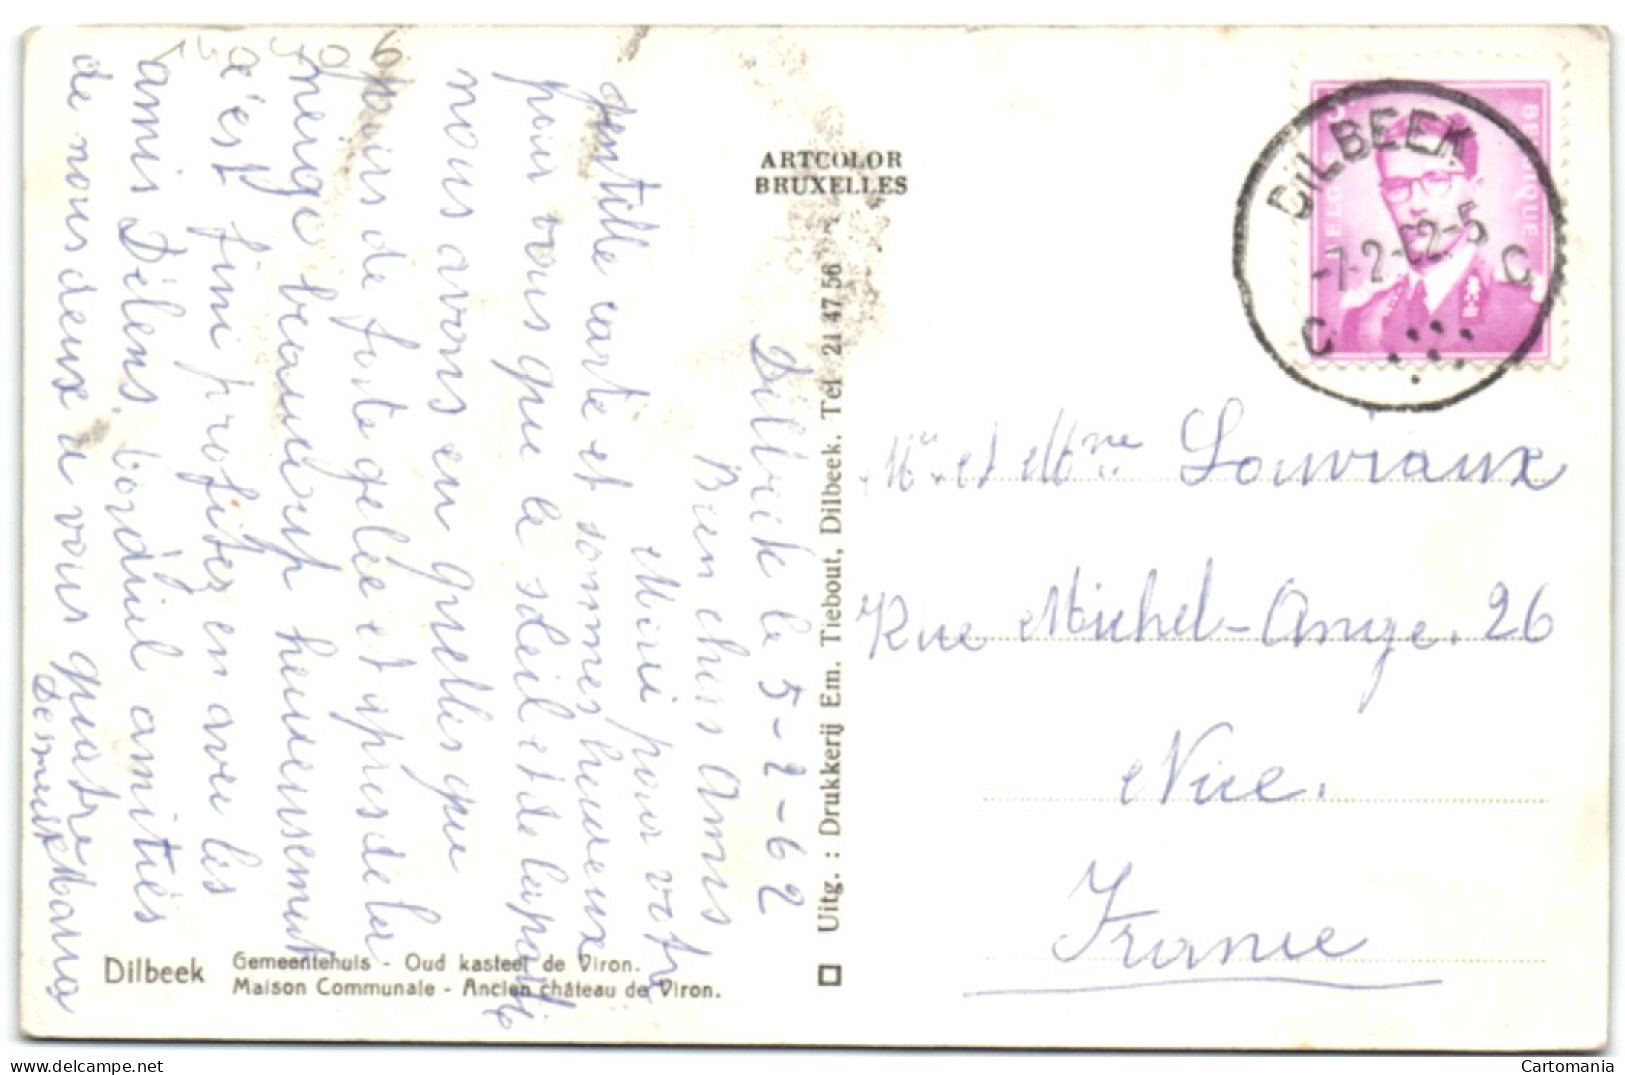 Dilbeek le 5-2-62
Bien chers Amis
Merci pour votre
gentille carte et sommes heureux
pour vous que le soleil et de la partie
nous avons eu quelles que
jours de forte gelée et après de la
neige beaucoup heureusement
c'est fini profitez en avec les
amis Délens, bordiul amitiés
de nous deux a vous quatre
ARTCOLOR
BRUXELLES
Uitg. : Drukkerij Em. Tiebout, Dilbeek. Tel 21 47 56
BELGIE BELGIQUE
DILBEEK
-7-2-62-5
C C
Mr et Mme Louviaux
Rue Michel-Ange. 26
Nice.
France
Dilbeek
Gemeentehuis - Oud kasteel de Viron.
Maison Communale - Ancien château de Viron.
Cartomania